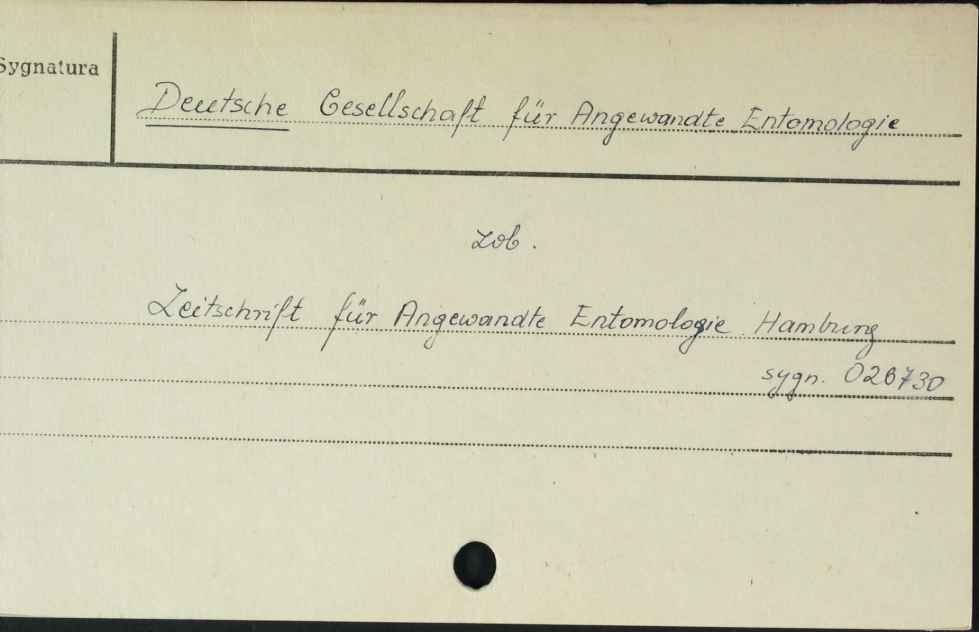 Sygnatura
Deutsche Gesellschaft für Angewandte Entomologie
zob.
Zeitschrift für Angewandte Entomologie Hamburg
sygn. 026730